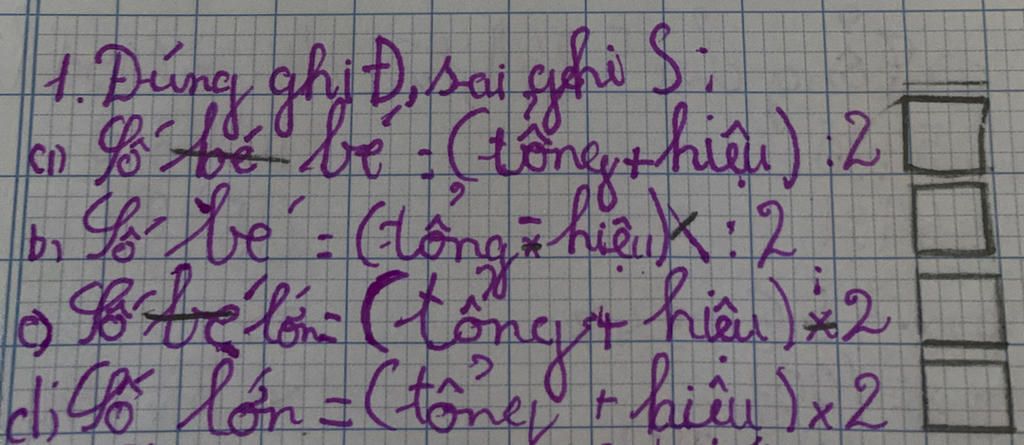 1. Đúng ghi Đ, sai ghi S:
a) Số bé = (tổng + hiệu) : 2
b) Số bé = (tổng - hiệu) : 2
c) Số lớn = (tổng + hiệu) : 2
d) Số lớn = (tổng + hiệu) x 2